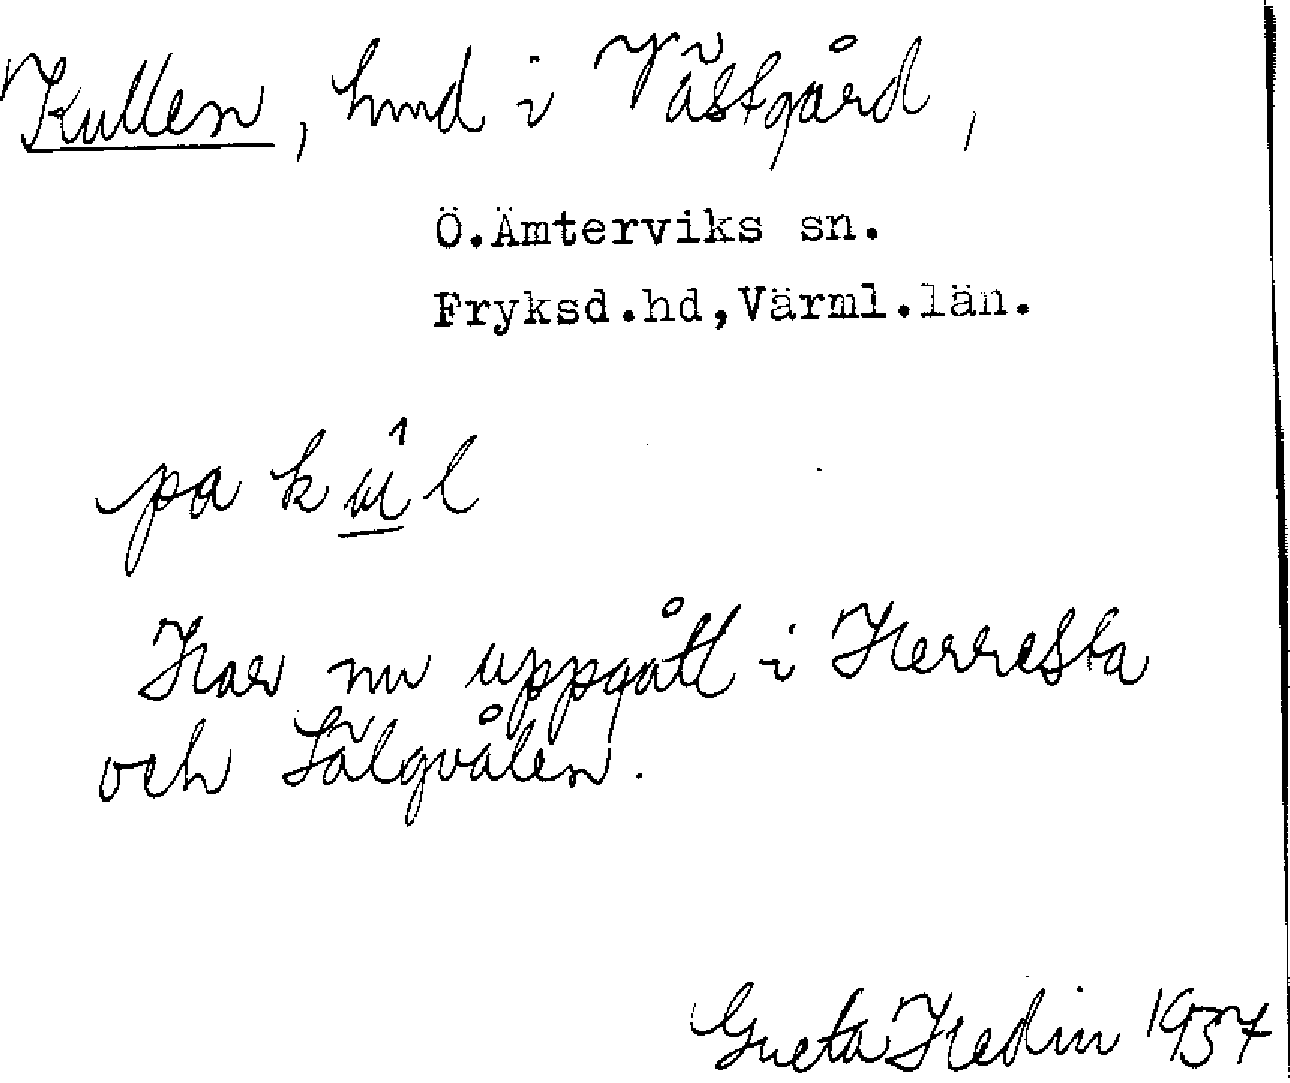 Kullen, hmd i Västgård,
Ö.Ämterviks sn.
Fryksd.hd,Värml.län.
pa kul
Har nu uppgått i Herresta
och Sälgvålen.
Greta Hedin 1937